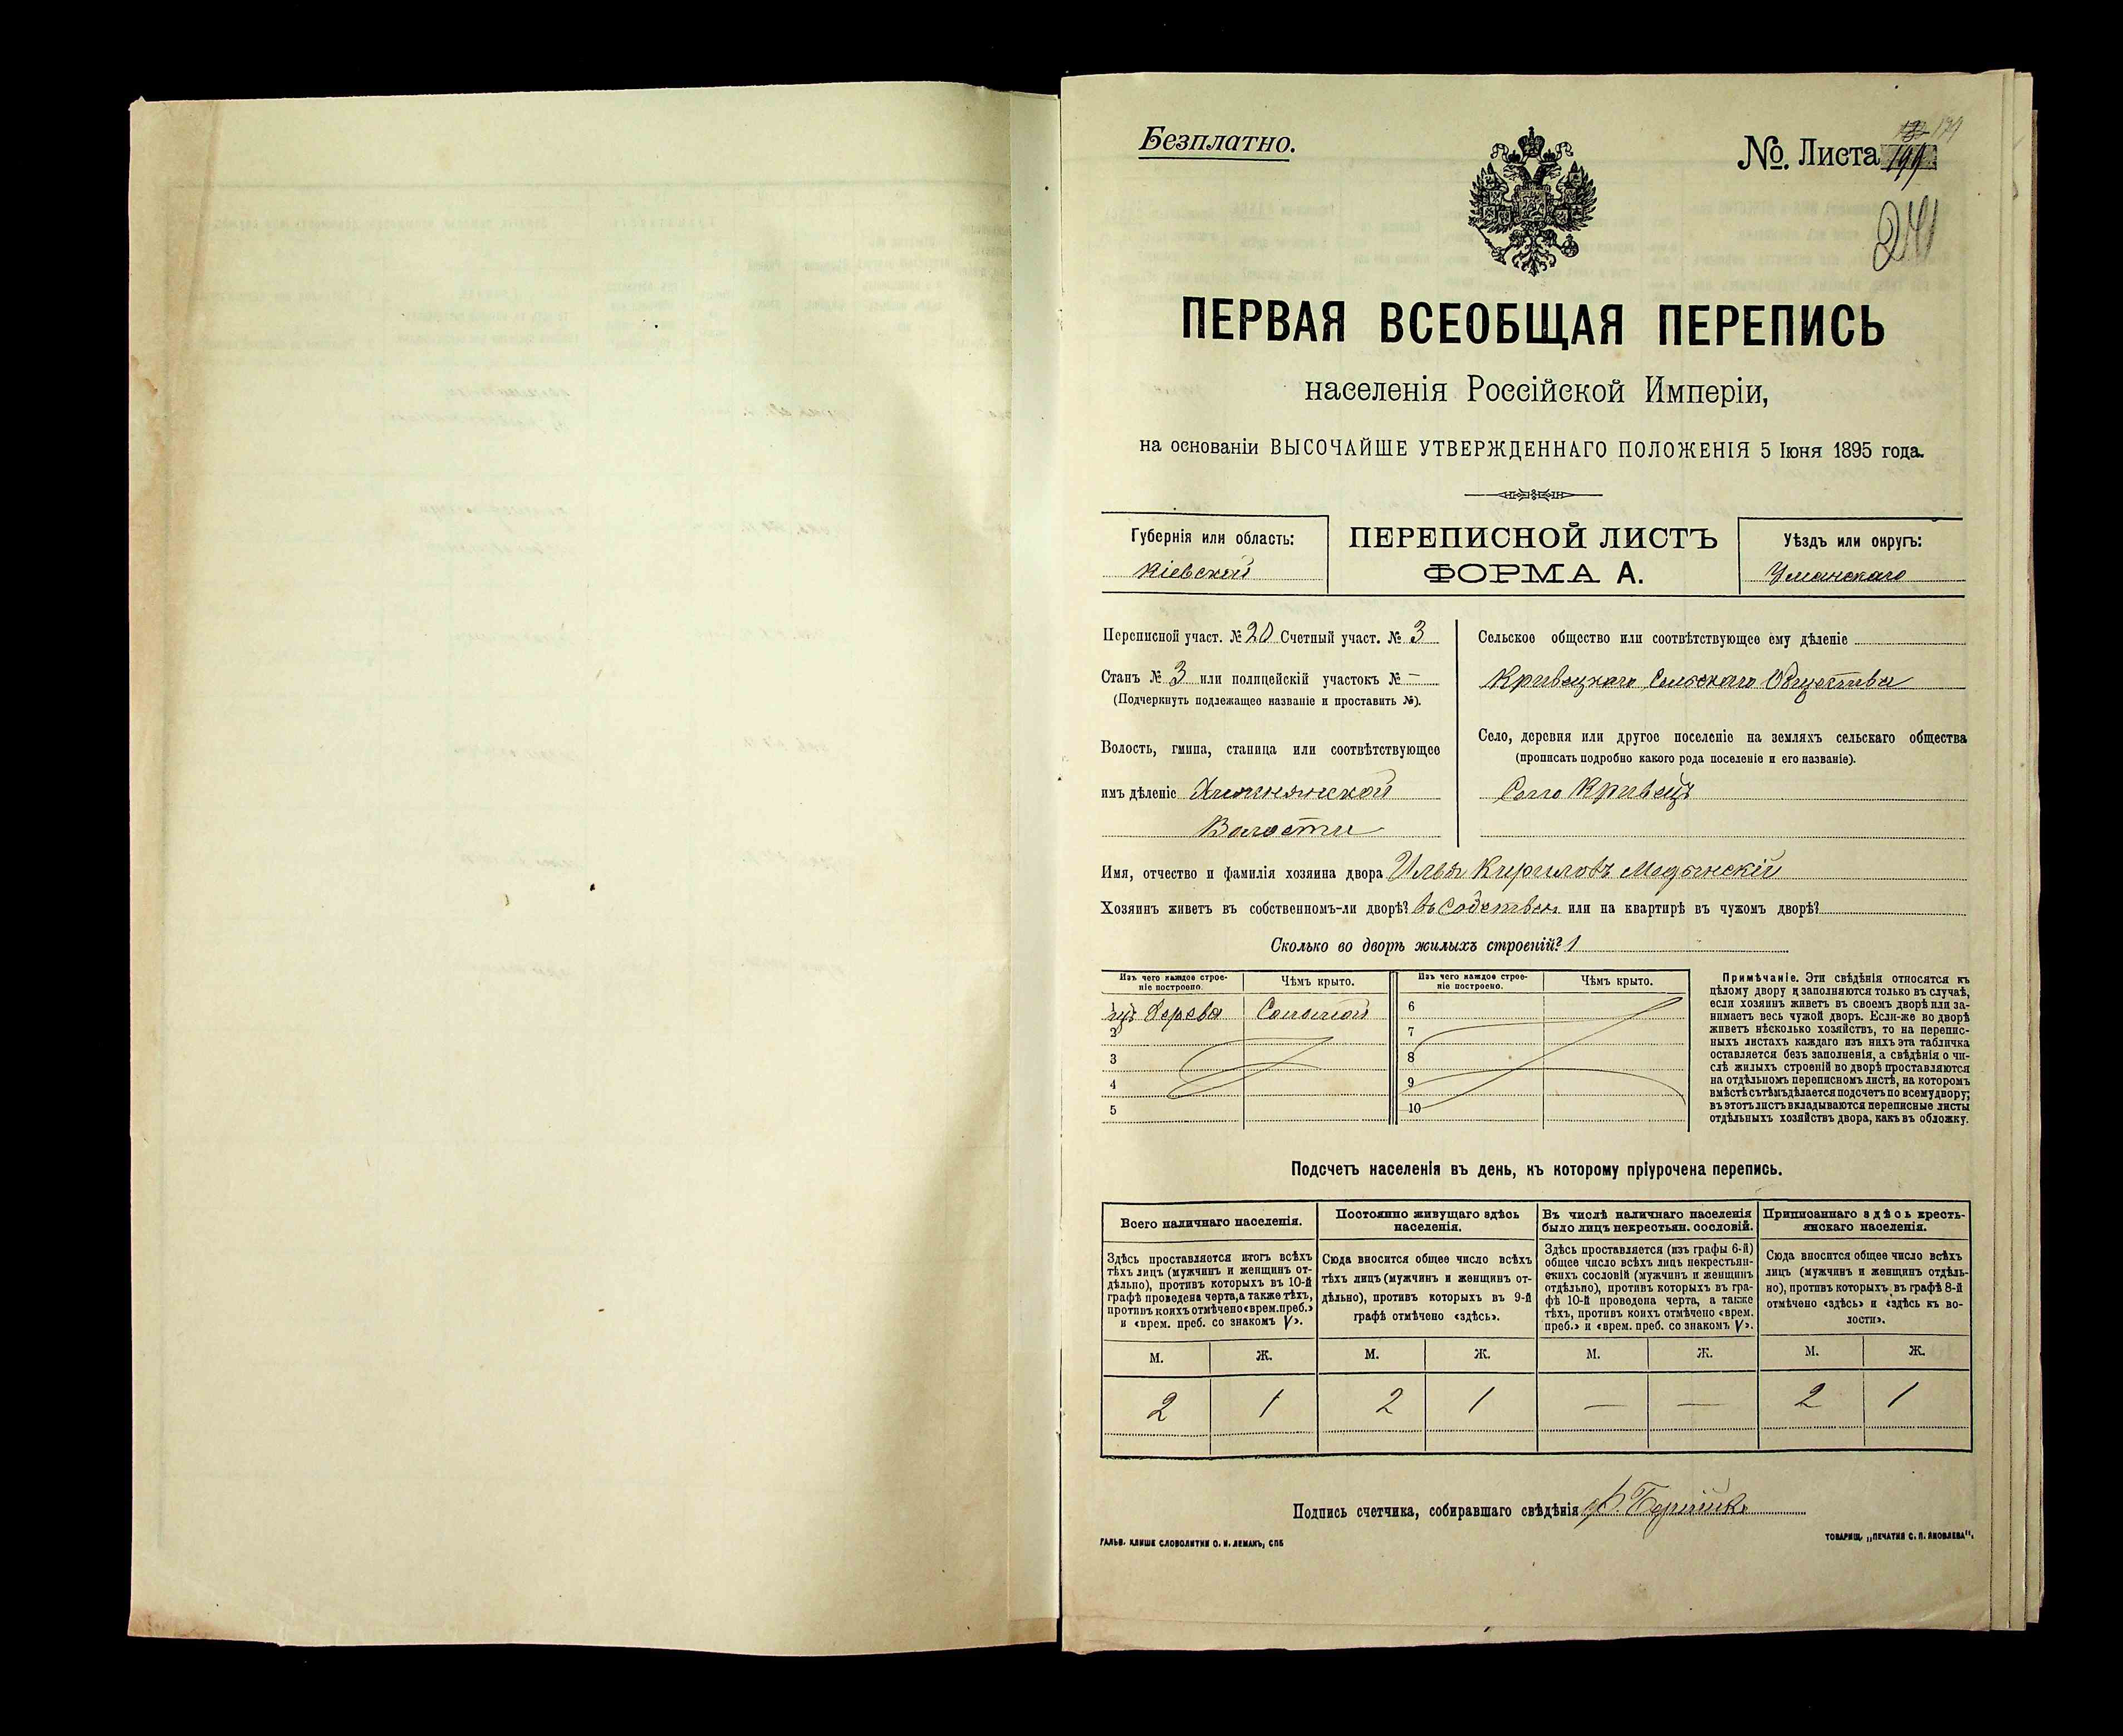 Безплатно.
№. Листа
241
ПЕРВАЯ ВСЕОБЩАЯ ПЕРЕПИСЬ
населенія Россійской Имперіи,
на основаніи ВЫСОЧАЙШЕ УТВЕРЖДЕННАГО ПОЛОЖЕНІЯ 5 Іюня 1895 года.
Губернія или область:
Кіевской
ПЕРЕПИСНОЙ ЛИСТЪ
ФОРМА А.
Уѣздъ или округъ:
Уманскаго
Переписной участ. № 20 Счетный участ. № 3
Станъ № 3 или полицейскій участокъ № –
(Подчеркнуть подлежащее названіе и проставить №).
Волость, гмина, станица или соотвѣтствующее
имъ дѣленіе
Волости
Сельское общество или соотвѣтствующее ему дѣленіе
Кривецкаго Сельскаго Общества
Село, деревня или другое поселеніе на земляхъ сельскаго общества
(прописать подробно какого рода поселеніе и его названіе).
Село Кривецъ
Имя, отчество и фамилія хозяина двора Илья Кириловъ Медынскій
Хозяинъ живетъ въ собственномъ-ли дворѣ? въ собствен. или на квартирѣ въ чужомъ дворѣ?
Сколько во дворѣ жилыхъ строеній? 1
Изъ чего каждое строе-
ніе построено.
Чѣмъ крыто.
Изъ чего каждое строе-
ніе построено.
Чѣмъ крыто.
1 изъ Дерева Соломой
2
3
4
5
6
7
8
9
10
Примѣчаніе. Эти свѣдѣнія относятся къ
цѣлому двору и заполняются только въ случаѣ,
если хозяинъ живетъ въ своемъ дворѣ или за-
нимаетъ весь чужой дворъ. Если-же во дворѣ
живетъ нѣсколько хозяйствъ, то на перепис-
ныхъ листахъ каждаго изъ нихъ эта табличка
оставляется безъ заполненія, а свѣдѣнія о чи-
слѣ жилыхъ строеній во дворѣ проставляются
на отдѣльномъ переписномъ листѣ, на которомъ
вмѣстѣ съ тѣмъ дѣлается подсчетъ по всему двору;
въ этотъ листъ вкладываются переписные листы
отдѣльныхъ хозяйствъ двора, какъ въ обложку.
Подсчетъ населенія въ день, къ которому пріурочена перепись.
Всего наличнаго населенія.
Здѣсь проставляется итогъ всѣхъ
тѣхъ лицъ (мужчинъ и женщинъ от-
дѣльно), противъ которыхъ въ 10-й
графѣ проведена черта, а также тѣхъ,
противъ коихъ отмѣчено «врем. преб.»
и «врем. преб. со знакомъ V».
Постоянно живущаго здѣсь
населенія.
Сюда вносится общее число всѣхъ
тѣхъ лицъ (мужчинъ и женщинъ от-
дѣльно), противъ которыхъ въ 9-й
графѣ отмѣчено «здѣсь».
Въ числѣ наличнаго населенія
было лицъ некрестьян. сословій.
Здѣсь проставляется (изъ графы 6-й)
общее число всѣхъ лицъ некрестьян-
скихъ сословій (мужчинъ и женщинъ
отдѣльно), противъ которыхъ въ гра-
фѣ 10-й проведена черта, а также
тѣхъ, противъ коихъ отмѣчено «врем.
преб.» и «врем. преб. со знакомъ V».
Приписаннаго здѣсь кресть-
янскаго населенія.
Сюда вносится общее число всѣхъ
лицъ (мужчинъ и женщинъ отдѣль-
но), противъ которыхъ въ графѣ 8-й
отмѣчено «здѣсь» и «здѣсь къ во-
лости».
М. Ж. М. Ж. М. Ж. М. Ж.
2 1 2 1 — — 2 1
Подпись счетчика, собиравшаго свѣдѣнія
ГАЛЬВ. КЛИШЕ СЛОВОЛИТНИ О. И. ЛЕМАНЪ, СПБ
ТОВАРИЩ. „ПЕЧАТНЯ С. П. ЯКОВЛЕВА".